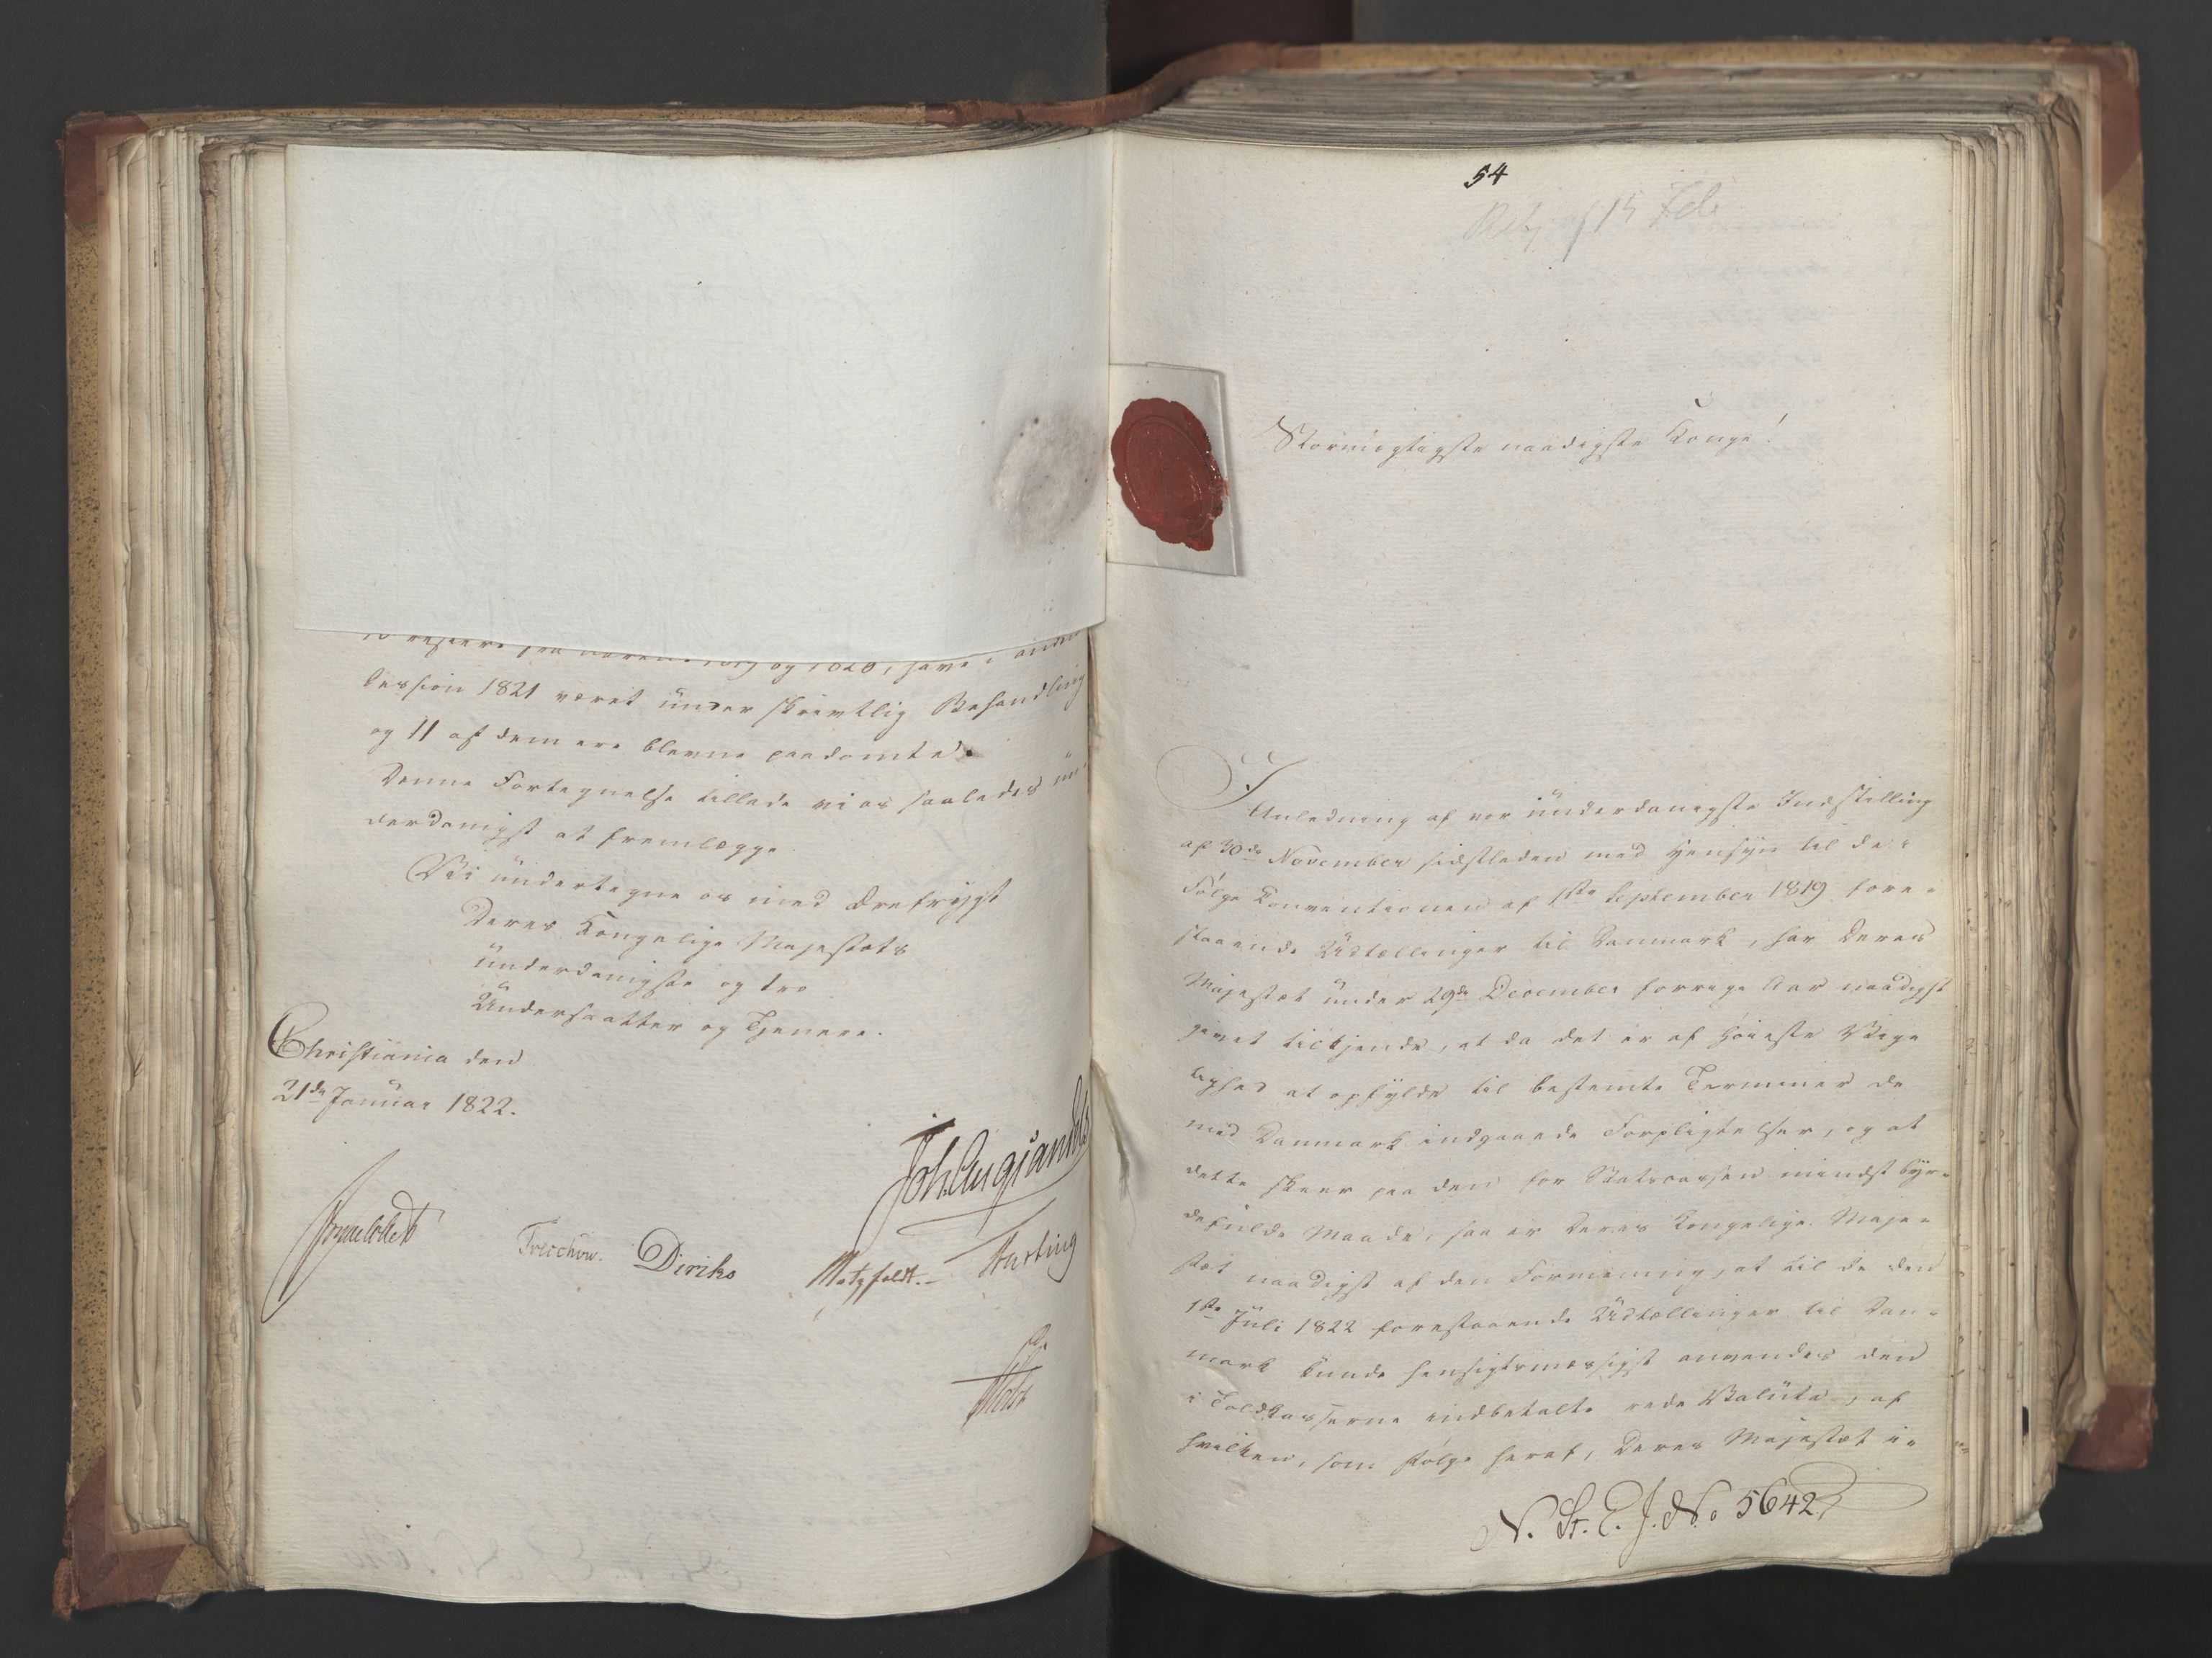 og 1820, have i anden
Session 1821 været under skrivtlig Behandling
og 11 af dem ere blevne paadømte.
Denne Fortegnelse tillade vi os saaledes un-
derdanigst at fremlægge.
Vi undertegne os med Ærefrygt
Deres Kongelige Majestæts
underdanigste og tro
Undersaatter og Tjenere.
Christiania den
21de Januar 1822.
Joh. Aug. Sandels
Jonas Collett
Treschow.
Diriks
Motzfeldt.
Harting
54
af 15 Feb
Stormægtigste naadigste Konge!
I Anledning af vor underdanigste Indstilling
af 30de November sidstleden med Hensyn til de i
Følge Conventionen af 1ste September 1819 fore-
staaende Udtællinger til Danmark, har Deres
Majestæt under 29de December forrige Aar naadigst
givet tilkjende, at da det er af høieste Vig-
tighed at opfylde til bestemte Terminer de
med Danmark indgaaede Forpligtelser, og at
dette skeer paa den for Statscassen mindst byr-
defulde Maade, saa er Deres Kongelige Maje-
stæt naadigst af den Formening, at til de den
1ste Juli 1822 forestaaende Udtællinger til Dan-
mark kunde hensigtsmæssigst anvendes den
i Toldkasserne indbetalte rede Valuta, af
hvilken, som Følge heraf, Deres Majestæt i-
N. St. E. J. No. 5642